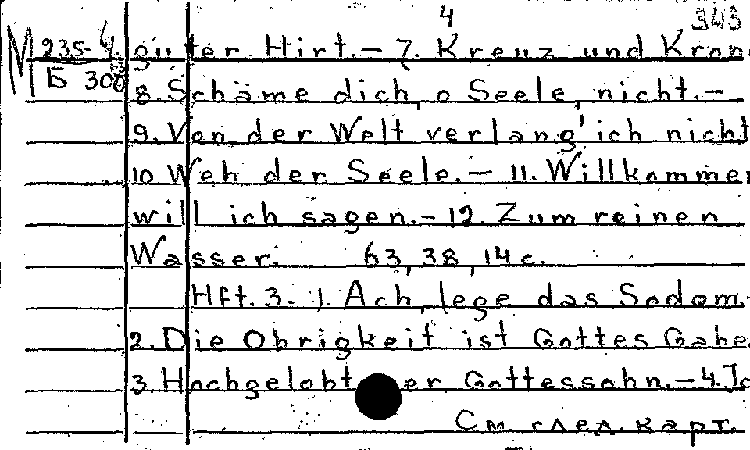 4 343
М 235-4 guter Hirt.– 7. Kreuz und Kron
Б 308 8. Schäme dich, o Seele, nicht.–
9. Von der Welt verlang' ich nicht
10 Weh der Seele.– 11. Willkommen
will ich sagen.– 12. Zum reinen
Wasser. 63, 38, 14 с.
Hft. 3. 1. Ach, lege das Sodom.
2. Die Obrigkeit ist Gottes Gabe.
3. Hochgelobt er Gottessohn.– 4.
См. след. карт.